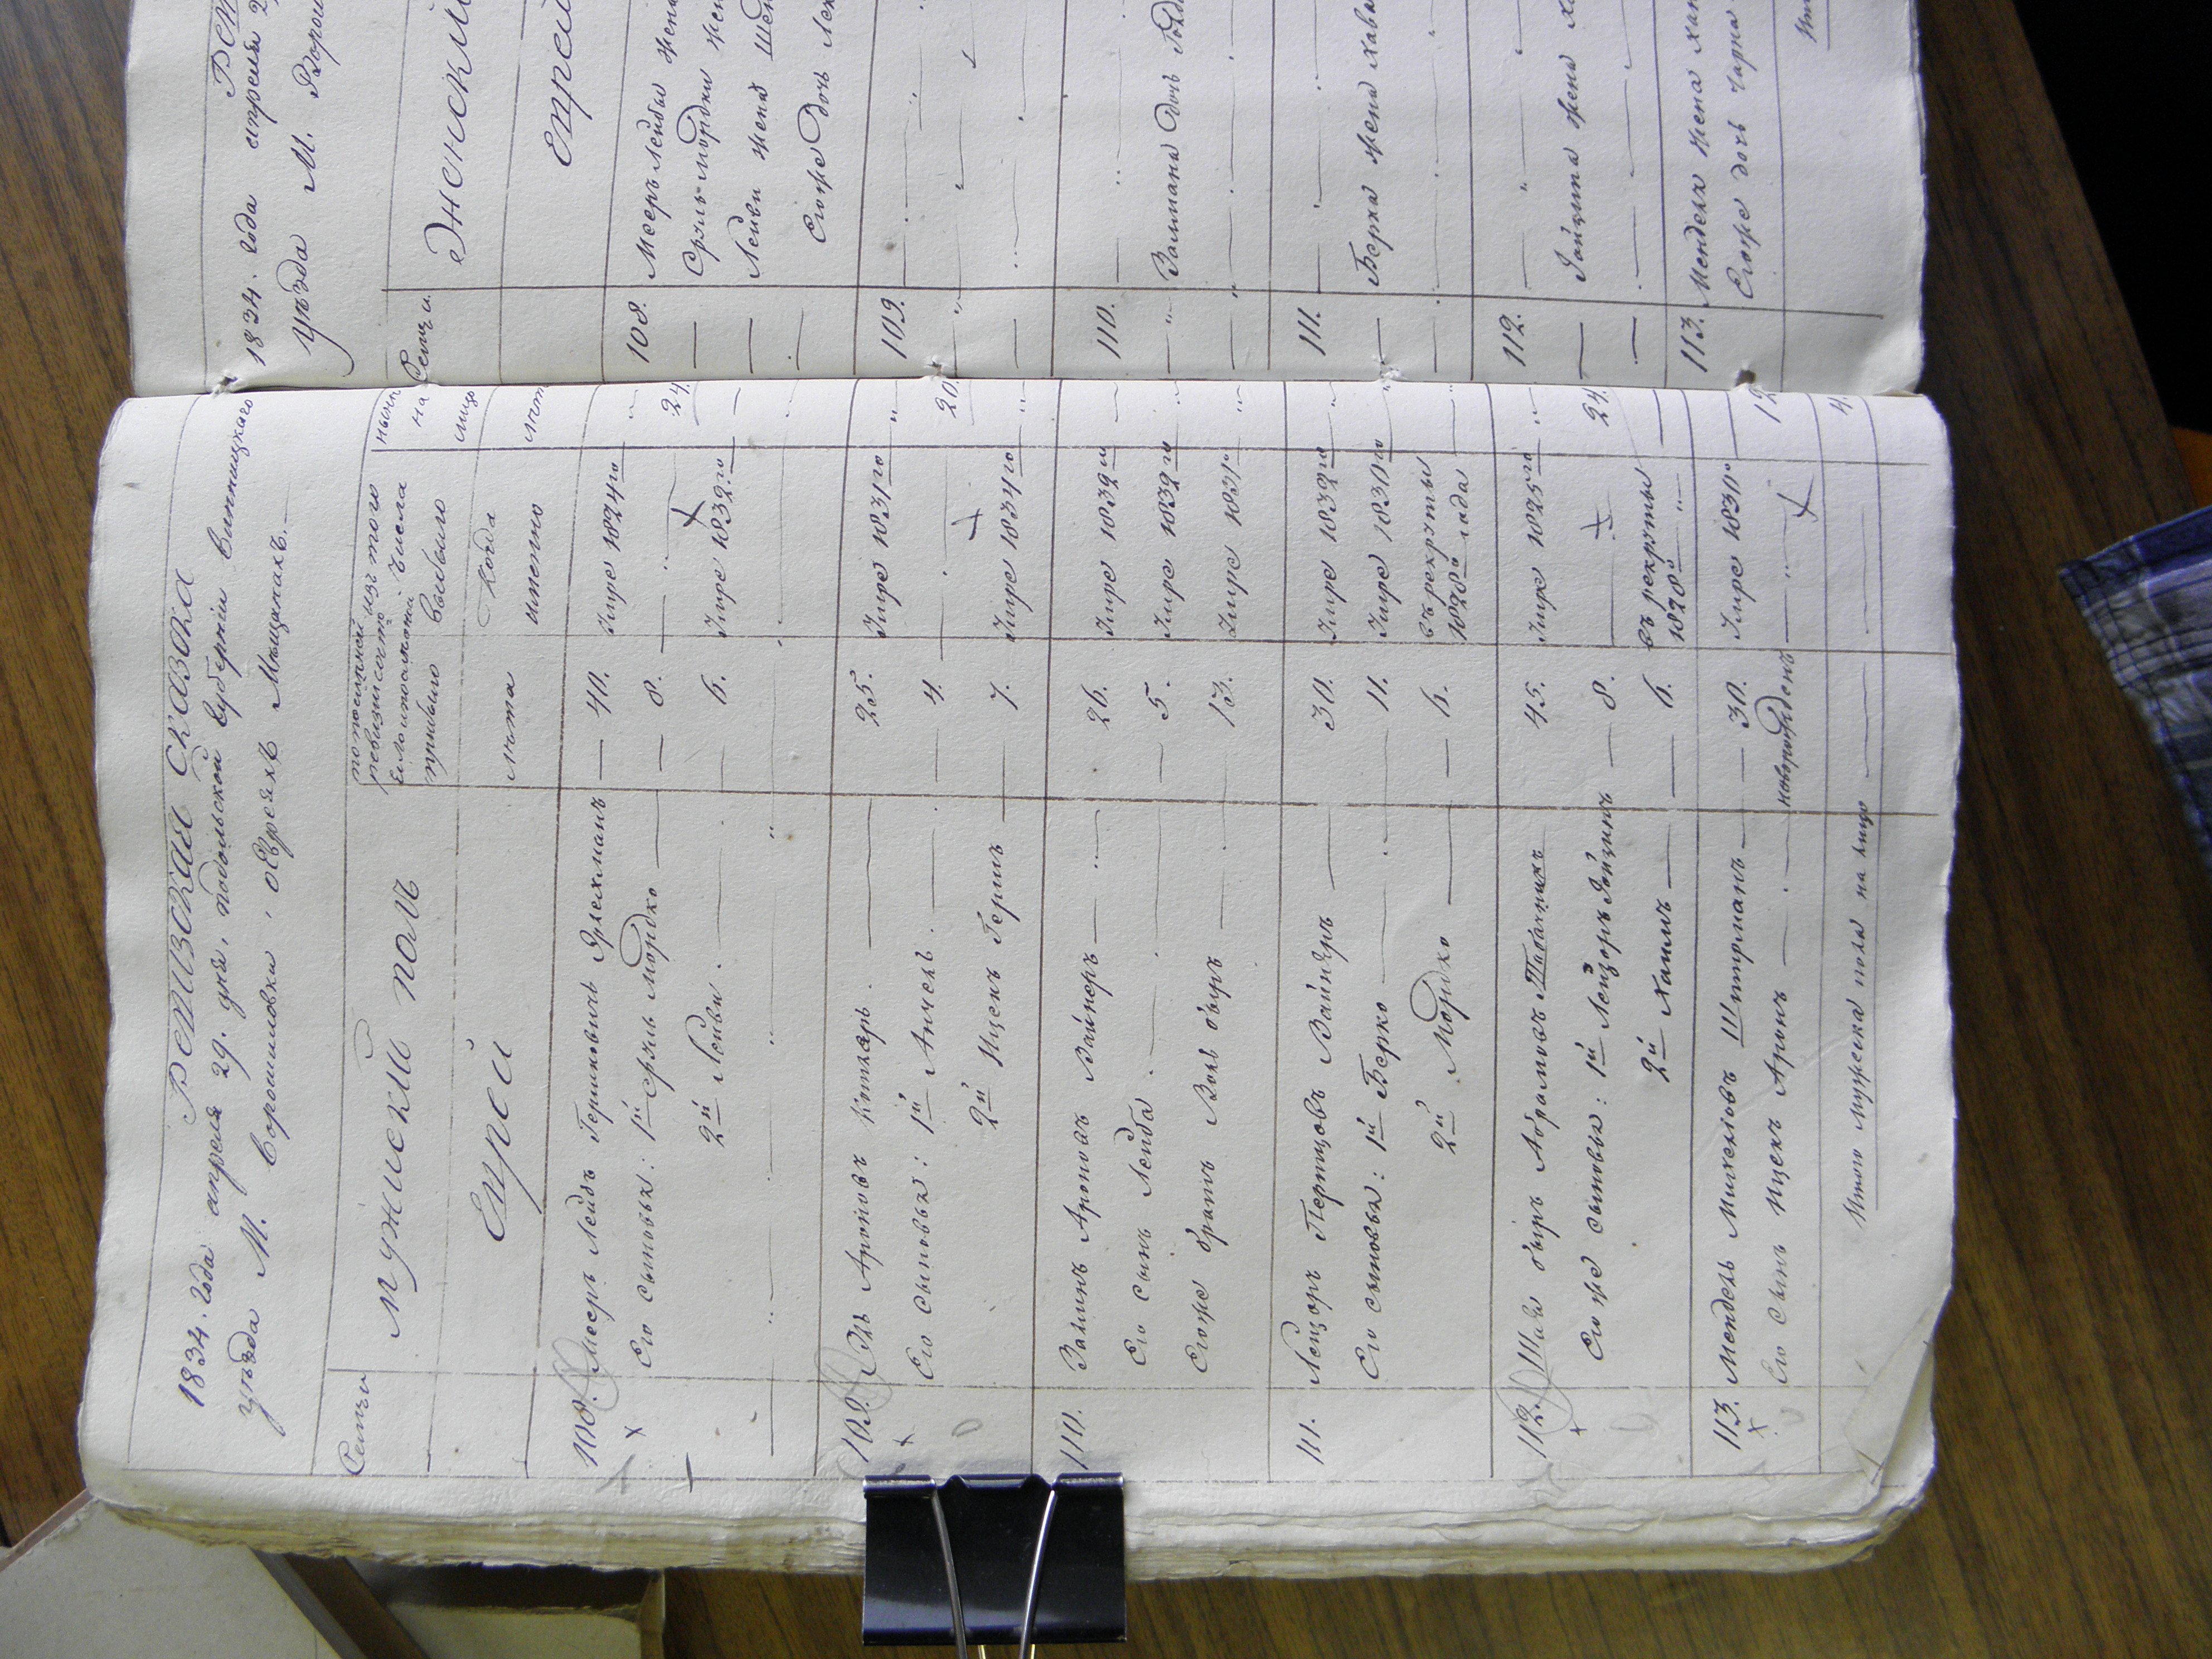 Ревизская Сказка
1834. года апреля 29. дня, Подольской Губернии Винницкаго
уезда М. Ворошиловки, о Евреяхъ Мещанахъ.
Семьи
Мужескiй полъ
Евреи
по последней
ревизiи состо
яло и после оной
прибыло
изъ того
числа
выбыло
ныне
на
лицо
лета
Когда
имянно
летъ
108. Мееръ Лейбъ Гершковичъ Фрехманъ — 40. Умре 1824го "
Его сыновья: 1й Сруль Мордко — 8. — 24.
2й Лейви. — 6. Умре 1832.го —
109. Ароновъ Котляръ. — 25. Умре 1831го "
Его сыновья: 1й Анчель. — 4. — 20.
2й Ицекъ Гершъ — 7. Умре 1834го "
110. Залманъ Ароновъ Вайнеръ — 26. Умре 1832го —
Его сынъ Лейба. — 5. Умре 1832го "
Егоже братъ Волъ Беръ — 13. Умре 1831го "
111. Лейзоръ Перецовъ Вайнеръ — 30. Умре 1832го
Его сыновья: 1й Берко — 11. Умре 1830го "
2й Мордко — 6. въ рекруты
1828й года "
112. Шая Беръ Абрамовъ Табачникъ 45. Умре 1825го "
Его же сыновья: 1й Лейзоръ Гойцинъ — 8. — 24.
2й Хаимъ — 6. въ рекруты
1828й " —
113. Мендель Михелевъ Штирманъ — 30. Умре 1830го —
Его сынъ Ицекъ Аронъ — новорожденъ — 12
Итого мужеска пола на лицо — 4.
1834. года апреля 2
уезда М. Ворош
Семьи
Женскiй
Еврей
108. Мееръ Лейбы жена
— Сруль Мордки жен
— Лейви жена Шей
— Егоже дочь Лея
109.
110.
— Залмана дочь
111.
— Берка жена Хава
112.
— Гойцина жена Ха
113. Менделя жена Хан
Егоже дочь Чарна